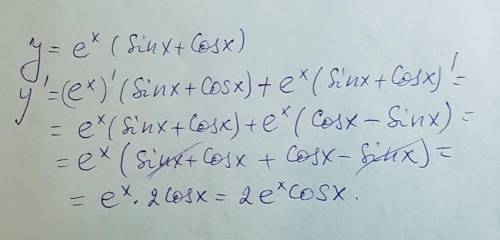 y = e^x (Sinx + Cosx)
y' = (e^x)' (Sinx + Cosx) + e^x (Sinx + Cosx)' =
= e^x (Sinx + Cosx) + e^x (Cosx - Sinx) =
= e^x (Sinx + Cosx + Cosx - Sinx) =
= e^x · 2 Cosx = 2 e^x Cosx.